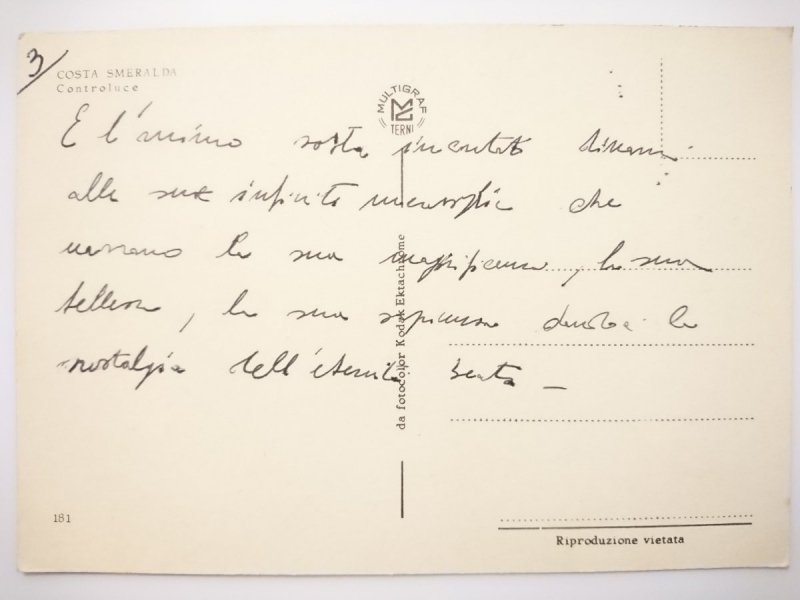 3/
COSTA SMERALDA
Controluce
MULTIGRAF
TERNI
E l'animo sosta incantato dinanzi
alle sue infinite meraviglie che
narrano la sua magnificenza, la sua
bellezza, la sua sapienza la
nostalgia dell'eternità beata –
da fotocolor Kodak Ektachrome
181
Riproduzione vietata